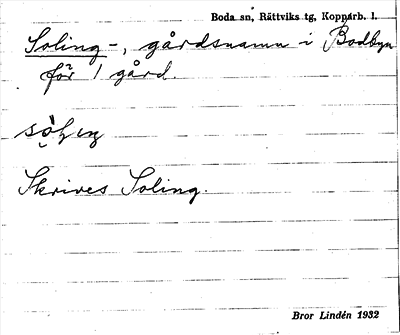 Boda sn, Rättviks tg, Kopparb. l.
Soling-, gårdsnamn i Bodbyn
för 1 gård.
Skrives Soling.
Bror Lindén 1932